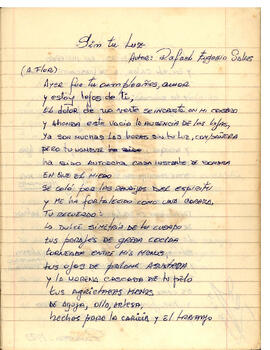 Sin tu Luz
Autor: Rafael Eugenio Salas
(A Flor):
Ayer fué tu cumpleaños, amor
y estoy lejos de ti,
El dolor de no verte se incrustó en mi costado
y ahonda este vacío la ausencia de los hijos,
Ya son muchas las horas sin tu luz, compañera
pero tu nombre
ha sido autorona cada instante de sombra
En que el miedo
Se coló por las rendijas del espíritu
y me ha fortalecido como una coraza.
Tu recuerdo:
La dulce simetría de tu cuerpo
tus parajes de greda cocida
torneada entre mis manos
tus ojos de paloma asustada
y la morena cascada de tu pelo
tus agrietadas manos
de aguja, olla, artesa,
hechas para la caricia y el trabajo